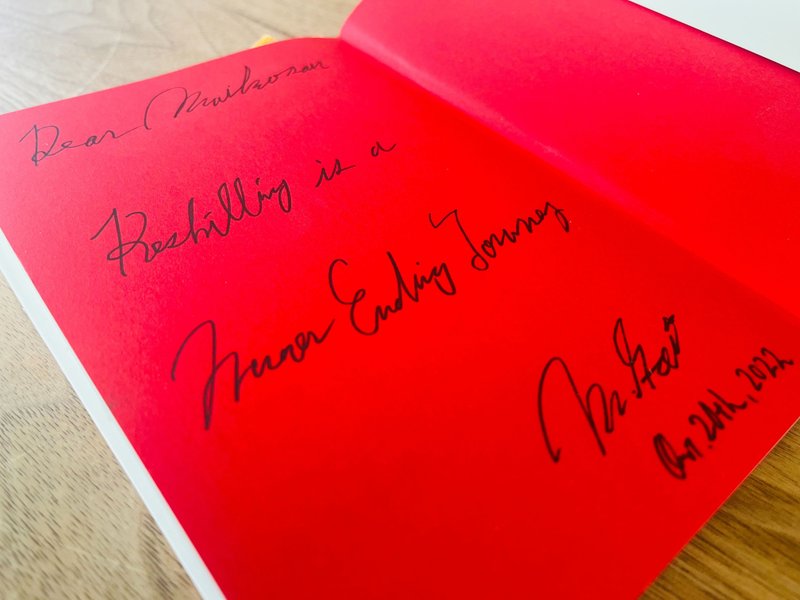 Dear Maikosan
Reskilling is a
Never Ending Journey
2022